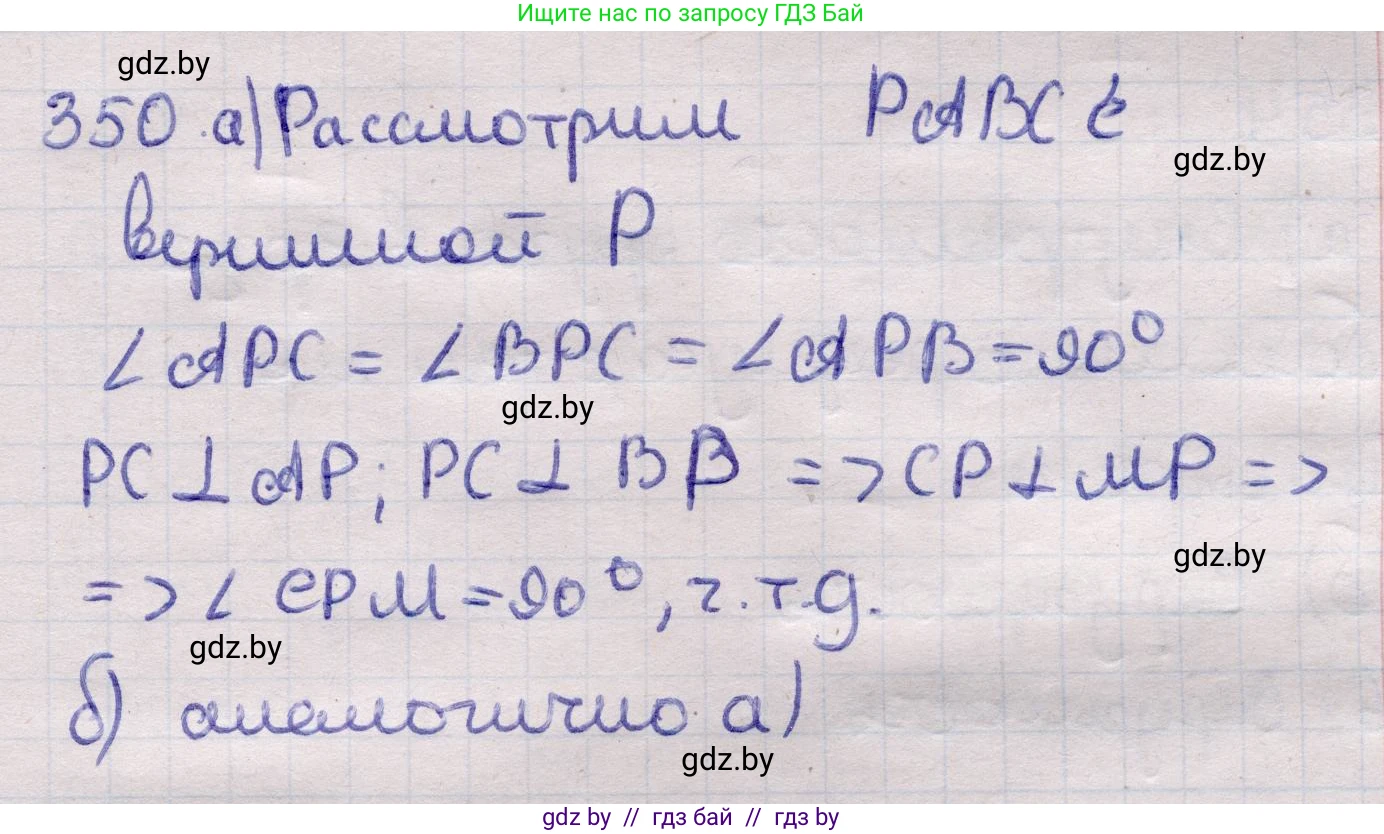 Ищите нас по запросу ГДЗ Бай
gdz.by
350 а) Рассмотрим PABC с
gdz.by
вершиной P
∠APC = ∠BPC = ∠APB = 90°
gdz.by
PC ⊥ AP; PC ⊥ BP => CP ⊥ MP =>
gdz.by
=> ∠ CPM = 90°, ч.т.д.
gdz.by
б) аналогично а)
gdz.by
gdz by // гдз бай // гдз by